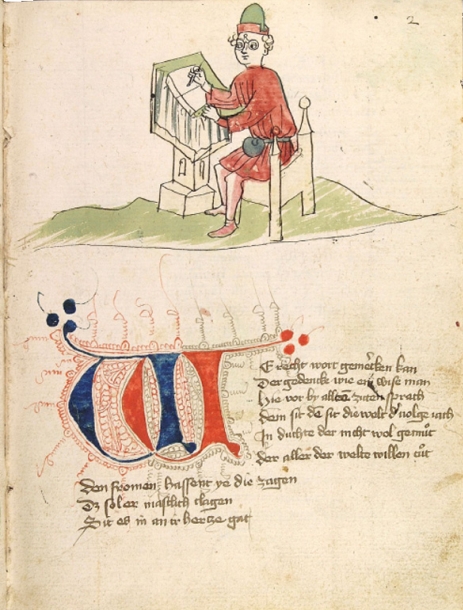 2
WE recht wort gemercken kan
Der gedenck wie ein wise man
Hie vor by alten ziten sprach
Dem sit de sit die welt volge iach
In duchte der nicht wol gemůt
Der aller der welte willen tůt
Den fromen hassent ye die zagen
Dz sol er mäslich clagen
Sit es in an ir hertze gat